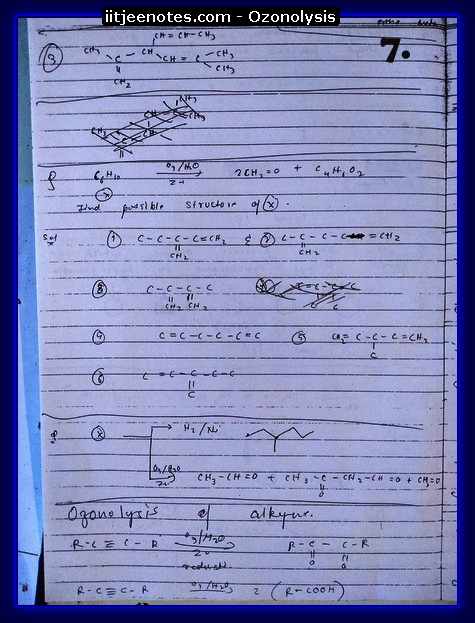 iitjeenotes.com - Ozonolysis
7.
CH = CH-CH3
③ CH3 C CH CH = C CH3
CH2 CH3
Q C6H10 O3/H2O Zn 2CH2=O + C4H6O2
(X)
Find possible structure of (X).
Sol ① C-C-C-C=CH2 & ② C-C-C-C =CH2
CH2 CH2
③ C-C-C-C
CH2 CH2
④ C=C-C-C-C=C ⑤ CH2= C-C-C=CH2
C
⑥ C =C-C-C-C
C
Q (X) H2/Ni
O3/H2O Zn CH3-CH=O + CH3-C-CH2-CH=O + CH2=O
O
Ozonolysis of alkyne.
R-C≡C-R O3/H2O Zn R-C-C-R
O O
R-C≡C-R O3/H2O 2 (R-COOH)